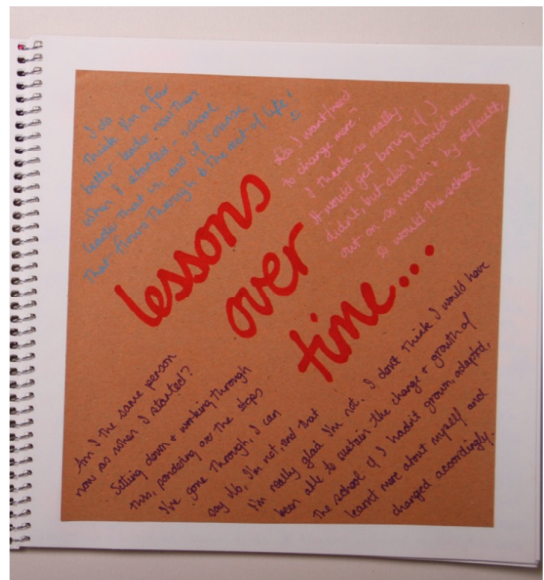 I do
think I'm a far
better leader now than
when I started - school
leader that is, our of course
that flows through to the rest of life!
Do I want/need
to change more?
I think so really.
It would get boring if I
didn't, but also, I would miss
out on so much & by default,
so would the school
lessons
over
time...
Am I the same person
now as when I started?
Sitting down & working through
this, pondering over the steps
I've gone through, I can
say No, I'm not, and that
I'm really glad I'm not. I don't think I would have
been able to sustain the change & growth of
the school if I hadn't grown, adapted,
learnt more about myself and
changed accordingly.